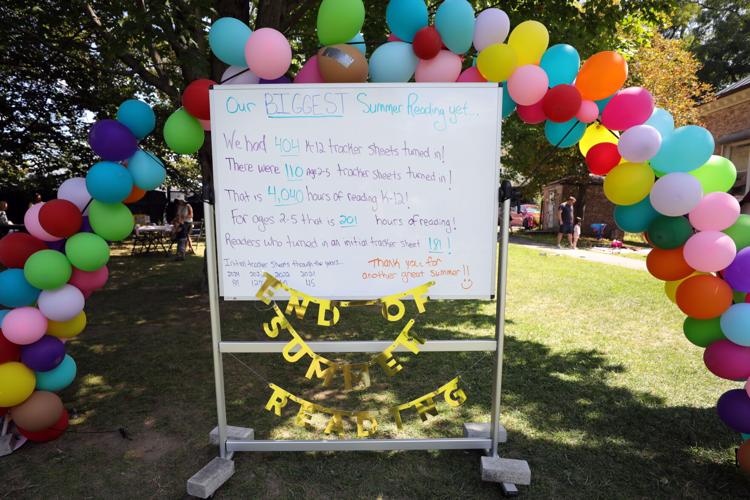 Our BIGGEST Summer Reading yet...
We had 404 K-12 tracker sheets turned in!
There were 110 age 2-5 tracker sheets turned in!
That is 4,040 hours of reading K-12!
For ages 2-5 that is 201 hours of reading!
Readers who turned in an initial tracker sheet 181!
Initial tracker sheets through the years...
45
Thank you for
another great summer!!
END OF
SUMMER
READING